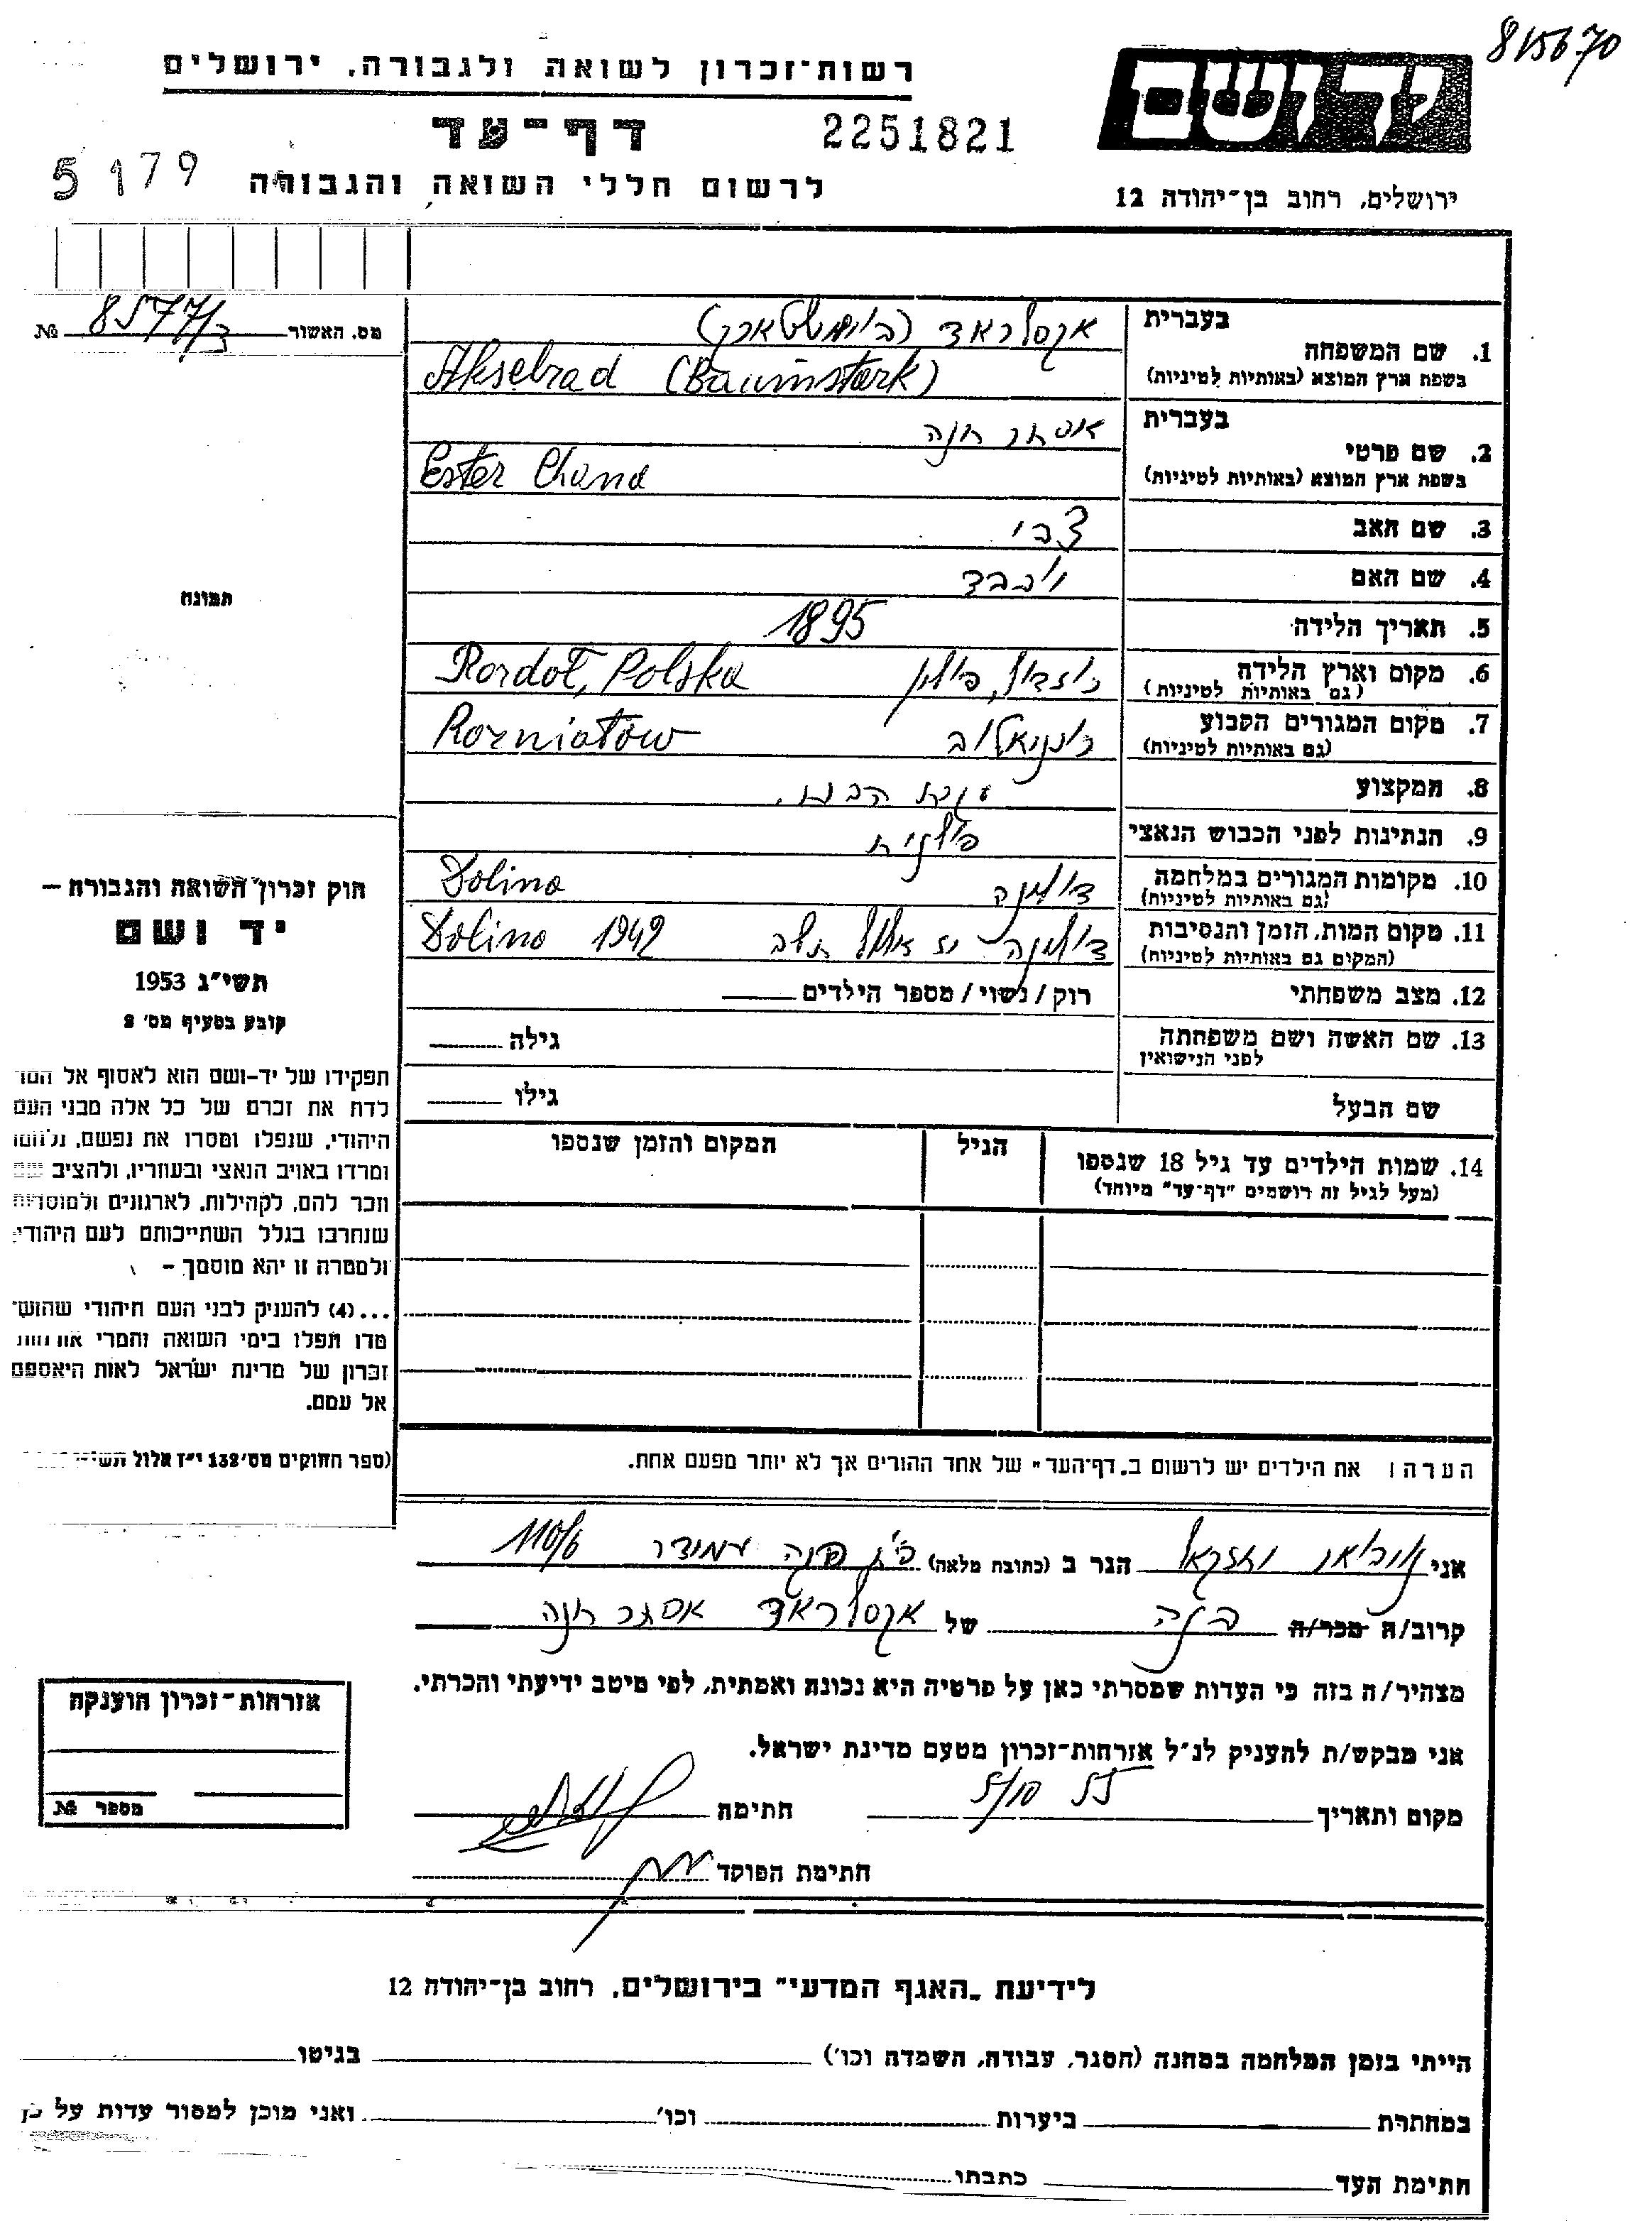 815670
רשות־זכרון לשואה ולגבורה, ירושלים
יד ושם
דף־עד
2251821
5179
לרשום חללי השואה והגבורה
ירושלים, רחוב בן־יהודה 12
מס. האשור 8577/ №
בעברית אקסלראד (בוימשטארק)
1. שם המשפחה
בשפת ארץ המוצא (באותיות לטיניות) Akselrad (Baumstark)
בעברית אסתר חנה
2. שם פרטי
בשפת ארץ המוצא (באותיות לטיניות) Ester Chana
3. שם האב צבי
4. שם האם
תמונה
5. תאריך הלידה 1895
6. מקום וארץ הלידה פולין Rordoł, Polska
(גם באותיות לטיניות)
7. מקום המגורים הקבוע רוזניאטוב Rozniatów
(גם באותיות לטיניות)
8. המקצוע עקרת הבית.
9. הנתינות לפני הכבוש הנאצי פולנית
10. מקומות המגורים במלחמה דולינה Dolina
(גם באותיות לטיניות)
11. מקום המות, הזמן והנסיבות דולינה יז אלול תש״ב Dolina 1942
(המקום גם באותיות לטיניות)
12. מצב משפחתי רוק / נשוי / מספר הילדים
13. שם האשה ושם משפחתה גילה
לפני הנישואין
שם הבעל גילו
14. שמות הילדים עד גיל 18 שנספו הגיל המקום והזמן שנספו
(מעל לגיל זה רושמים "דף־עד" מיוחד)
חוק זכרון השואה והגבורה —
יד ושם
תשי״ג 1953
קובע בסעיף מס׳ 2
תפקידו של יד-ושם הוא לאסוף אל המו
לדת את זכרם של כל אלה מבני העם
היהודי, שנפלו ומסרו את נפשם, נלחמו
ומרדו באויב הנאצי ובעוזריו, ולהציב שם
וזכר להם, לקהילות, לארגונים ולמוסדות
שנחרבו בגלל השתייכותם לעם היהודי
ולמטרה זו יהא מוסמך —
...(4) להעניק לבני העם היהודי שהוש־
מדו ונפלו בימי השואה והמרי אזרחות
זכרון של מדינת ישראל לאות היאספם
אל עמם.
(ספר החוקים מס׳ 132 י״ז אלול
הערה: את הילדים יש לרשום ב„דף־העד" של אחד ההורים אך לא יותר מפעם אחת.
אני יחזקאל הגר ב (כתובת מלאה) פ״ת פנה עמודר 110/6
קרוב/ה מכר/ה של אקסלראד אסתר חנה
מצהיר/ה בזה כי העדות שמסרתי כאן על פרטיה היא נכונה ואמתית, לפי מיטב ידיעתי והכרתי.
אני מבקש/ת להעניק לנ״ל אזרחות־זכרון מטעם מדינת ישראל.
מקום ותאריך חתימה
חתימת הפוקד
אזרחות־זכרון הוענקה
מספר №
לידיעת „האגף המדעי" בירושלים, רחוב בן־יהודה 12
הייתי בזמן המלחמה במחנה (הסגר, עבודה, השמדה וכו׳) בגיטו
במחתרת ביערות וכו׳ ואני מוכן למסור עדות על כך
חתימת העד כתבתו